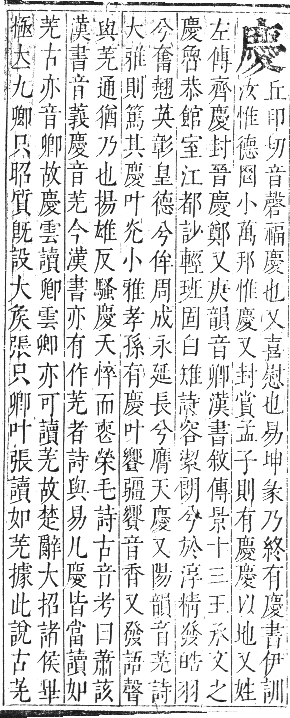 慶丘印切音磬福慶也又喜慰也易坤彖乃終有慶書伊訓
汝惟德罔小萬邦惟慶又封賞孟子則有慶慶以地又姓
左傳齊慶封晉慶鄭又庚韻音卿漢書敘傳景十三王承文之
慶魯恭館室江都訬輕班固白雉詩容絜朗兮於淳精發皓羽
兮奮翹英彰皇德兮侔周成永延長兮膺天慶又陽韻音羌詩
大雅則篤其慶叶光小雅孝孫有慶叶饗疆饗音香又發語聲
與羌通猶乃也揚雄反騷慶天悴而喪榮毛詩古音考曰蕭該
漢書音義慶音羌今漢書亦有作羌者詩與易凡慶皆當讀如
羌古亦音卿故慶雲讀卿雲卿亦可讀羌故楚辭大招諸侯畢
極大九卿只昭質旣設大侯張只卿叶張讀如羌據此說古羌